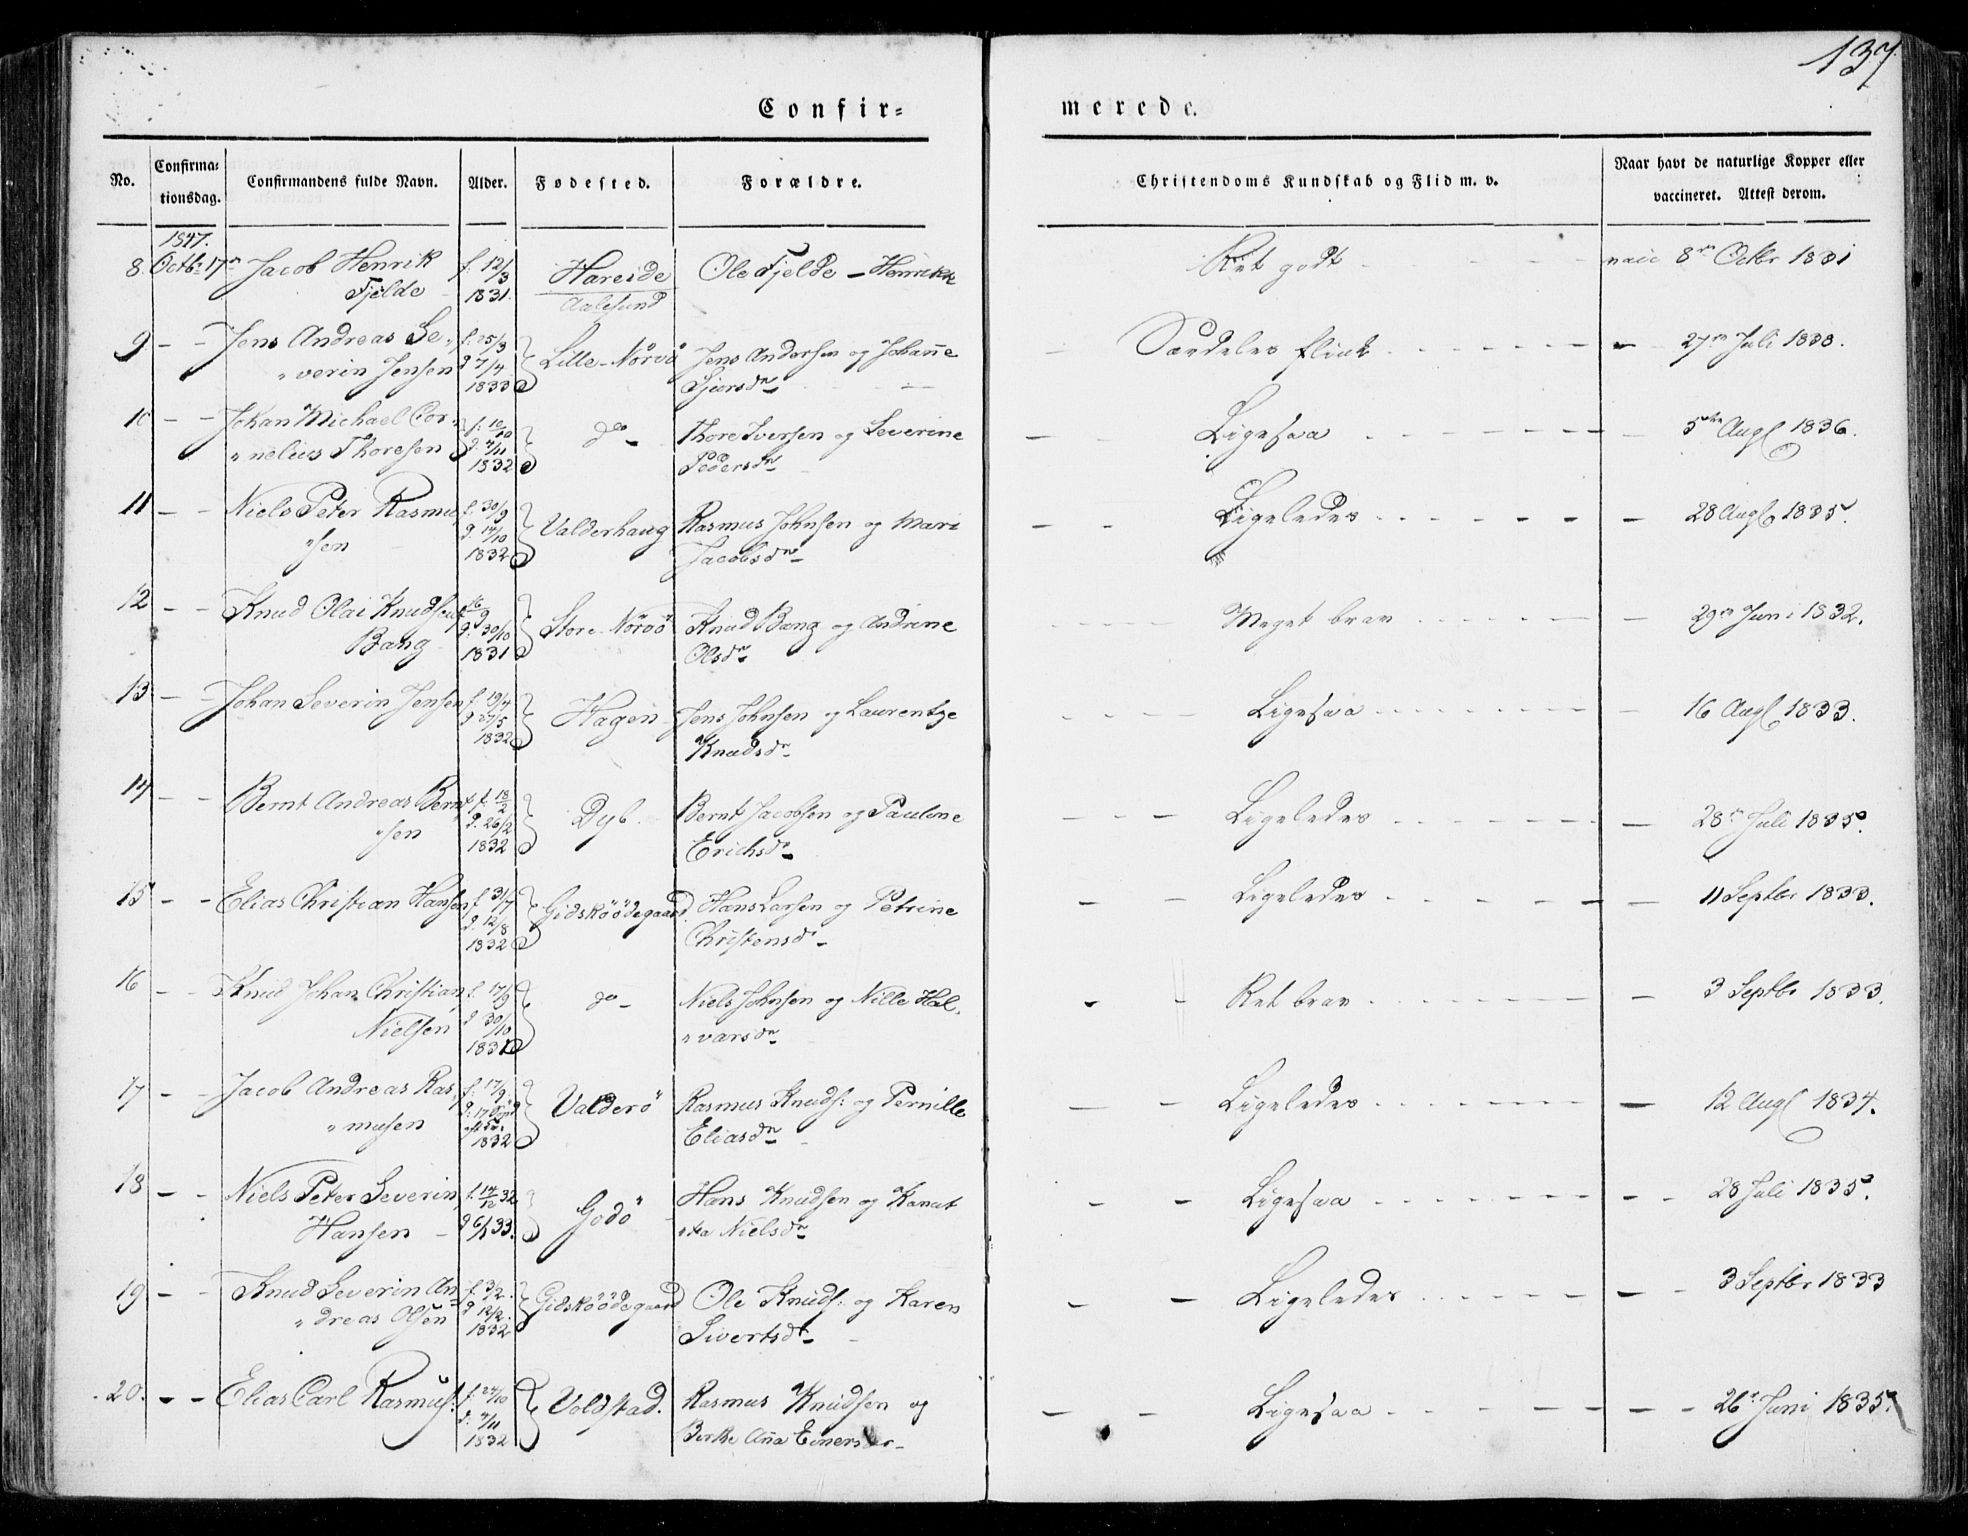 137
Confir=
merede.
No.
Confirma=
tionsdag.
Confirmandens fulde Navn.
Alder.
Fødested.
Forældre.
Christendoms Kundskab og Flid m. v.
Naar havt de naturlige Kopper eller
vaccineret. Attest derom.
1847.
8 Octbr 17n Jacob Henrik f. 12/3 Hareide Ole Fjelde - Ret godt 8n Octbr 1831
Fjelde 1831. Aalesund
9 - - Jens Andreas Se- f. 25/3 Lille-Nörvö Jens Andersen og Johanne Særdeles flink 27n Juli 1833.
"verin Jensen d 7/4 1833
10 - - Johan Michael Cor- f. 10/10 do - Thore Iversen og Severine Ligesaa 5te Aug 1836.
"nelius Thoresen d. 4/11 1832 Pedersdr
11 - - Niels Peter Rasmu- f. 30/9 Valderhaug Rasmus Johnsen og Mari Ligeledes 28 Aug 1835.
"sen d. 14/10 1832 Jacobsdr
12 - - Knud Olai Knudsen 16/9 Store-Nörvö Knud Bang og Andrine Meget brav 29n Juni 1832.
Bang d. 30/10 1831 Olsdr
13 - - Johan Severin Jensen f. 19/4 Hagen Jens Johnsen og Laurentze Ligesaa 16 Aug 1833.
d 27/5 1832 Knudsdr
14 - - Bernt Andreas Bernt- f. 18/2 Dyb. Bernt Jacobsen og Pauline Ligeledes 28n Juli 1835.
"sen d. 26/2 1832 Erichsdr
15 - - Elias Christian Hansen f. 31/7 Gidsköödegaard. Hans Larsen og Petrine Ligeledes 11 Septbr 1833.
d. 12/8 1832 Christensdr
16 - - Knud Johan Christian f. 17/9 do - Niels Johnsen og Nille Hal- Ret brav 3 Septbr 1833.
Nielsen d 30/10 1831 "varsdr
17 - - Jacob Andreas Ras- f. 17/9 Valderö Rasmus Knuds: og Pernille Ligeledes 12 Aug 1834.
"musen 1832 Eliasdr
18 - - Niels Peter Severin f. 14/12 32 Godö Hans Knudsen og Kanut Ligesaa 28 Juli 1835.
Hansen - d 6/1 33. "ta Nielsdr
19 - - Knud Severin An- f. 3/2. Gidsköödegaard Ole Knuds: og Karen Ligeledes 3 Septbr 1833
"dreas Olsen d 12/2. 1832 Sivertsdr
20. - - Elias Carl Rasmus: f. 24/10 Voldstad. Rasmus Knudsen og Ligesaa 26n Juni 1835.
d. 4/11 1832 Berthe Ana